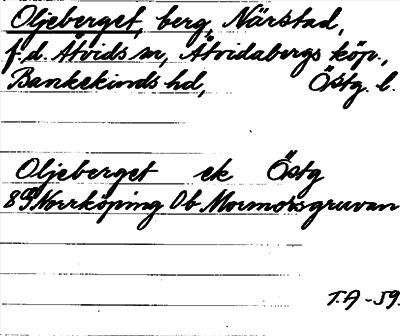 Oljeberget, berg, Närstad,
f.d. Åtvids sn, Åtvidabergs köp.,
Bankekinds hd, Östg. l.
Oljeberget ek Östg
8f9 Norrköping Ob Mormorsgruvan
T.A -59.